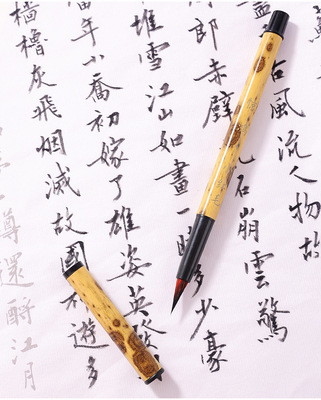 盡
古風流人物故
郎赤壁
石崩雲驚
堆雪江山如畫一時多少豪
年小喬初嫁了雄姿英發
檣櫓灰飛烟滅故國
遊多
一樽還酹江月